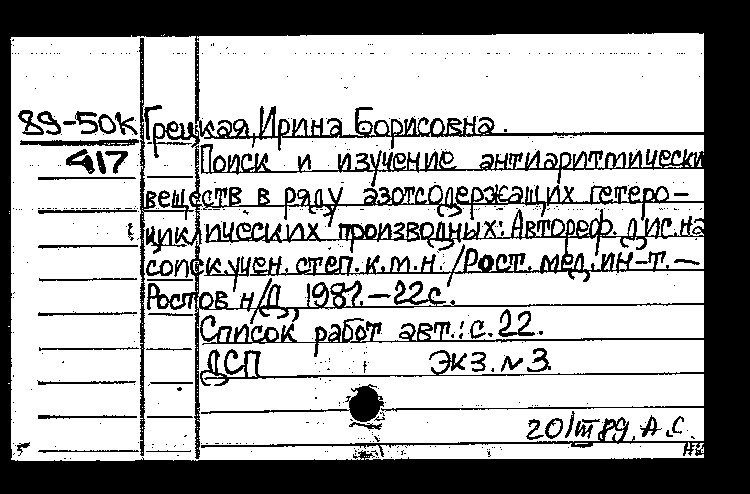 89-50К Грецкая, Ирина Борисовна.
417 Поиск и изучение антиаритмически
веществ в ряду азотсодержащих гетеро-
циклических производных: Автореф. дис. на
соиск. учен. степ. к.м.н. /Рост. мед. ин-т. —
Ростов н/Д, 1987. — 22 с.
Список работ авт.: с. 22.
ДСП ЭКЗ. № 3.
20/III 89, А.С.